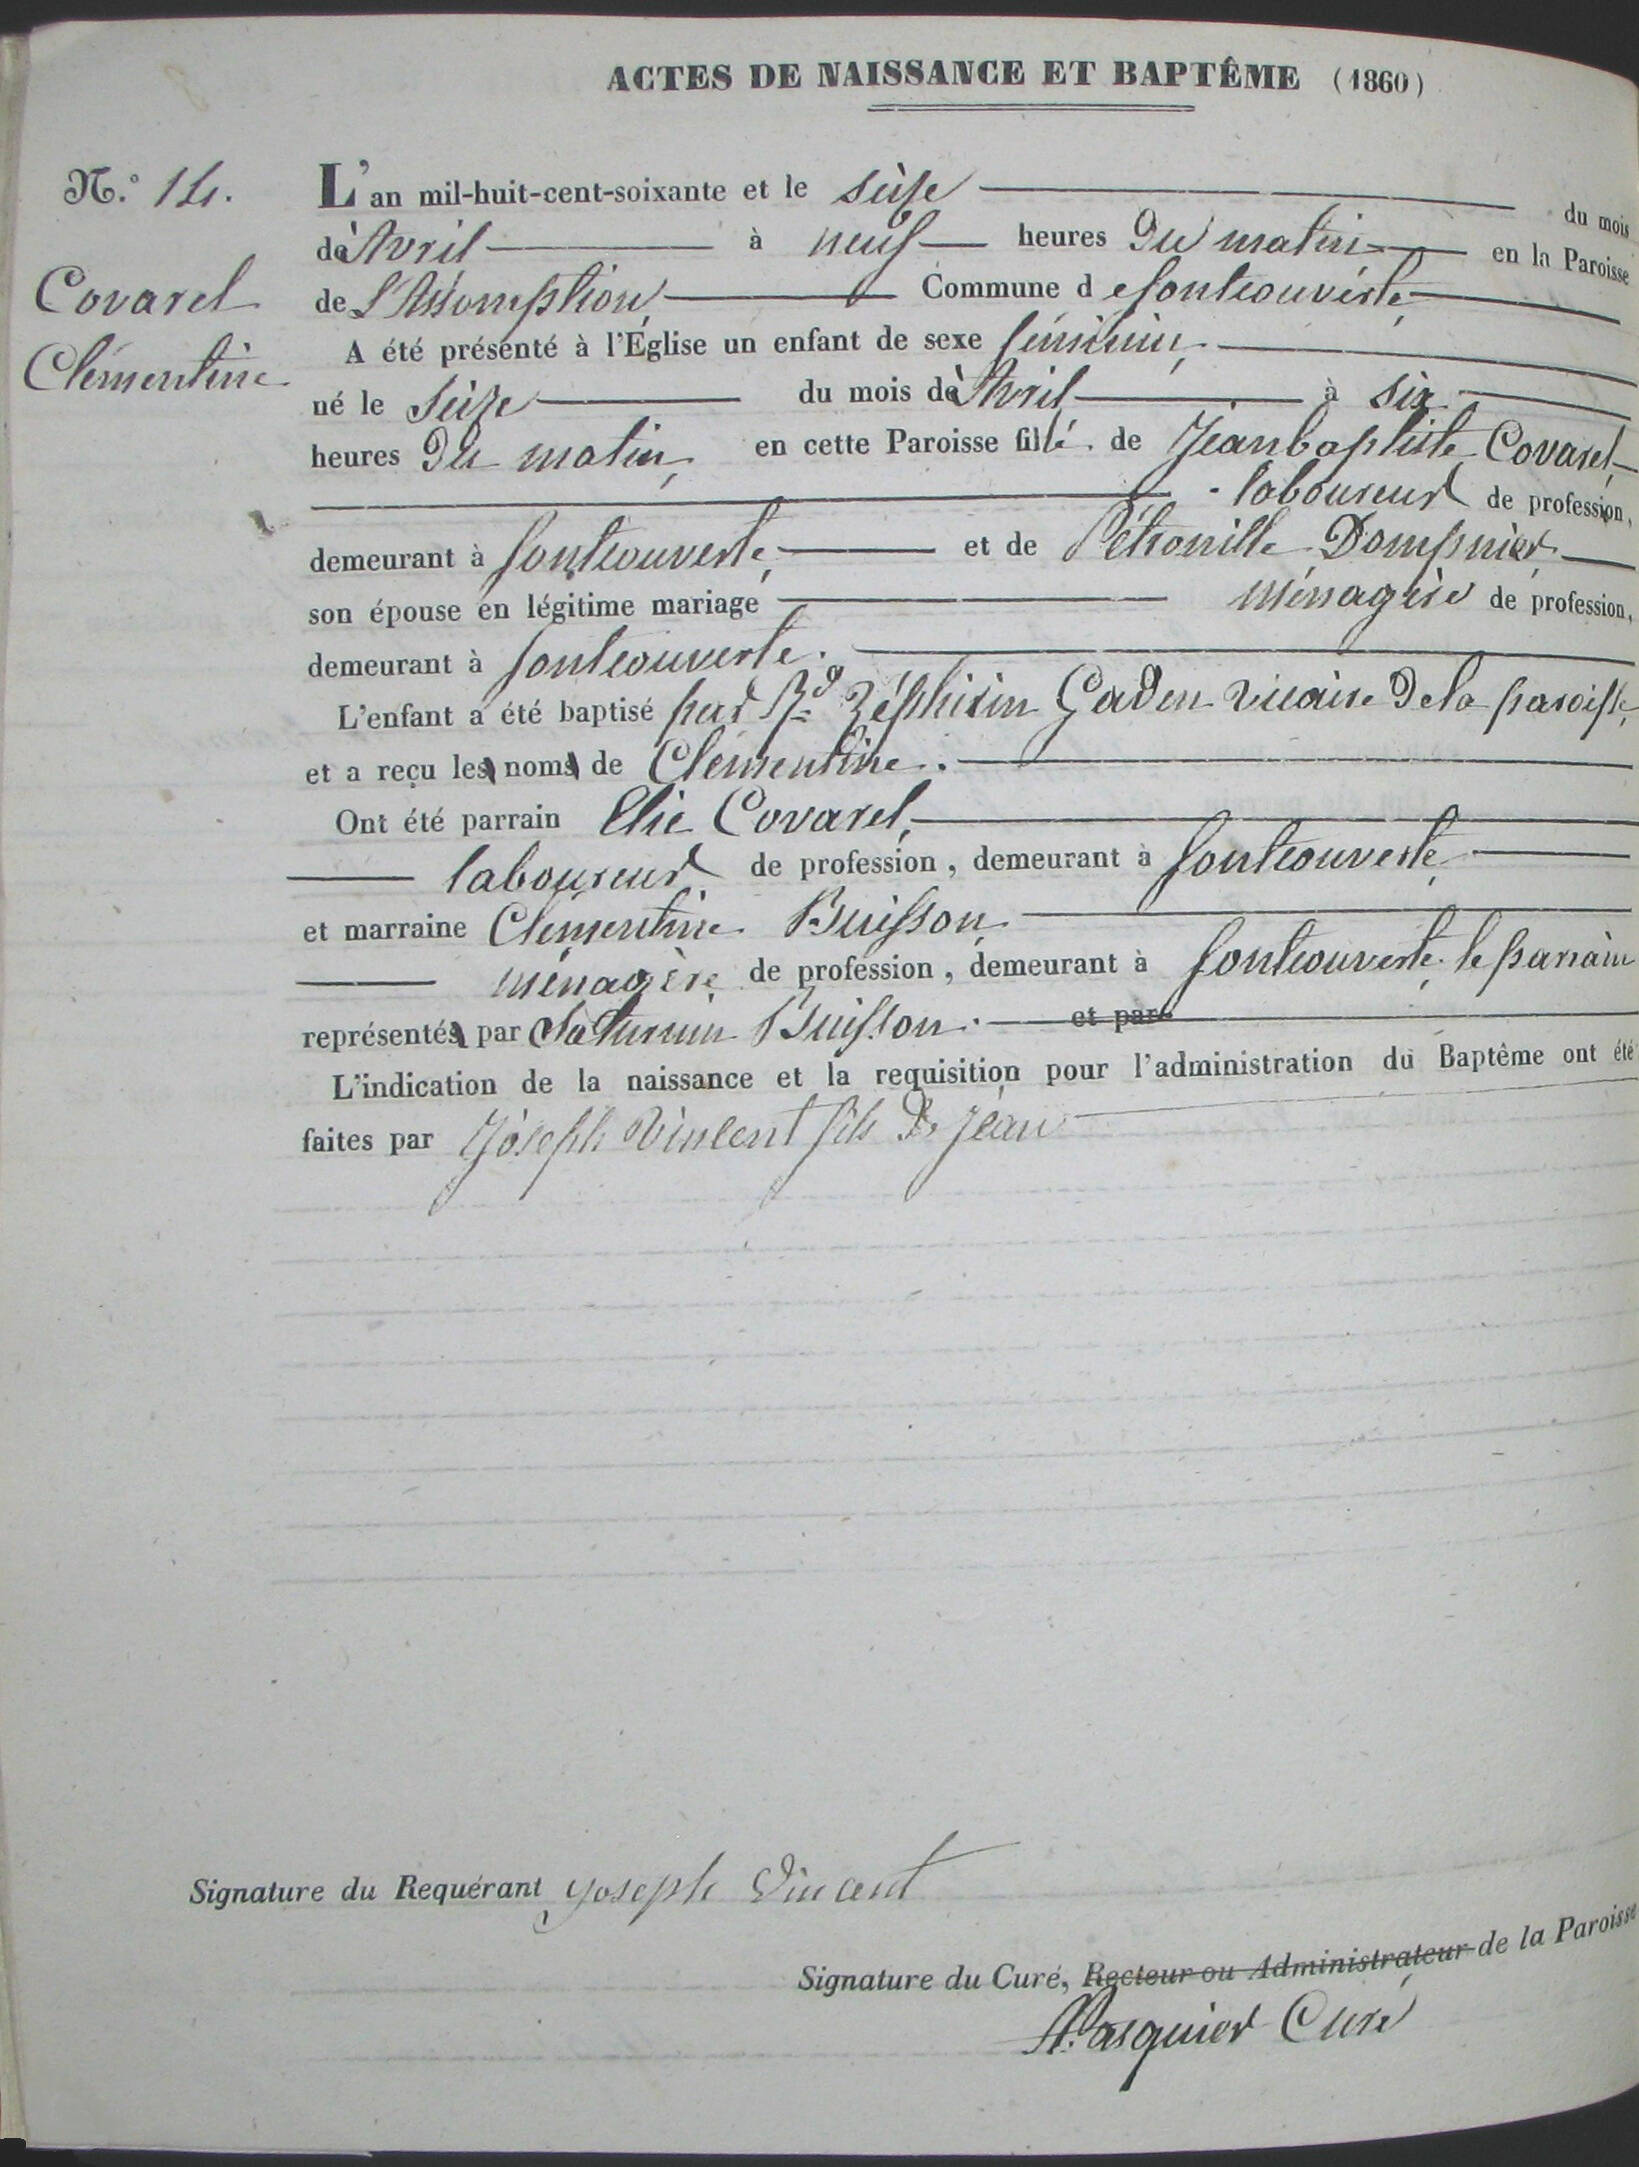 ACTES DE NAISSANCE ET BAPTÊME (1860)
N.o 14.
Covarel
Clémentine
L'an mil-huit-cent-soixante et le seize du mois
d'Avril à neuf heures du matin en la Paroisse
de l'Assomption Commune de fontcouverte
A été présenté à l'Église un enfant de sexe féminin
né le seize du mois d'Avril à six
heures du matin, en cette Paroisse fille de Jeanbaptiste Covarel
laboureur de profession,
demeurant à fontcouverte, et de Pétronille Dompnier,
son épouse en légitime mariage ménagère de profession,
demeurant à fontcouverte.
L'enfant a été baptisé par Rd Zéphirin Gaden vicaire de la paroisse,
et a reçu le nom de Clémentine.
Ont été parrain Elie Covarel,
laboureur de profession, demeurant à fontcouverte
et marraine Clementine Buisson
ménagère de profession, demeurant à fontcouverte. le parrain
représenté par Saturnin Buisson. et par
L'indication de la naissance et la requisition pour l'administration du Baptême ont été
faites par Joseph Vincent fils de Jean
Signature du Requérant Joseph Vincent
Signature du Curé, Recteur ou Administrateur de la Paroisse
Pasquier Curé